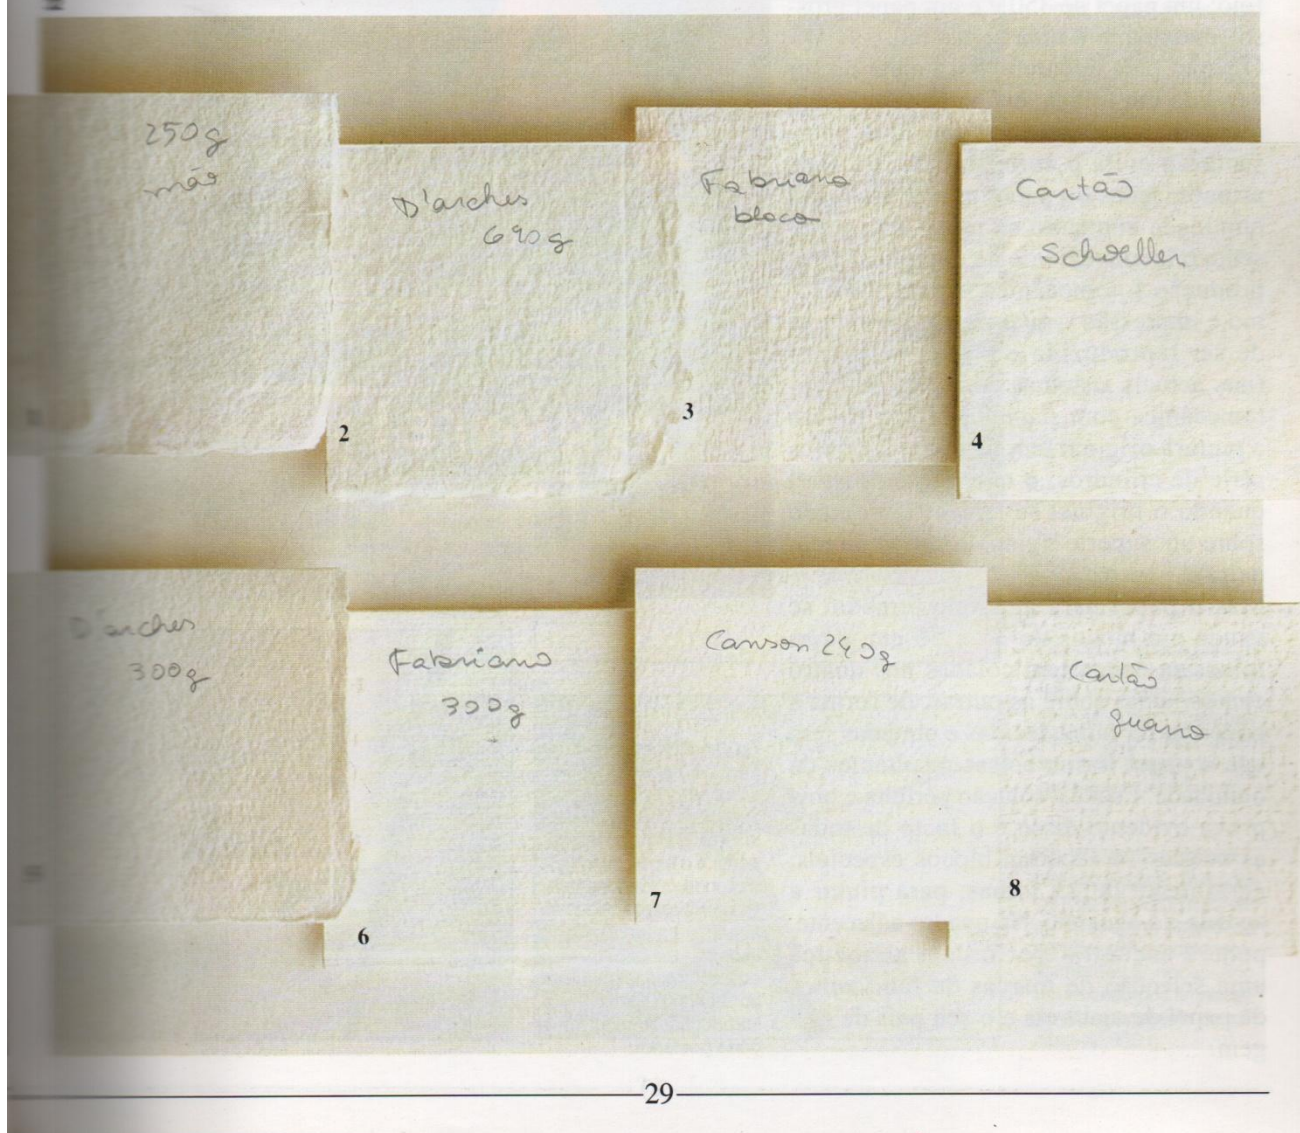 250g
mão
D'arches
640g
Fabriano
bloco
Cartão
Schoeller
2
3
4
D'arches
300g
Fabriano
300g
Canson 240g
Cartão
guarro
6
7
8
29